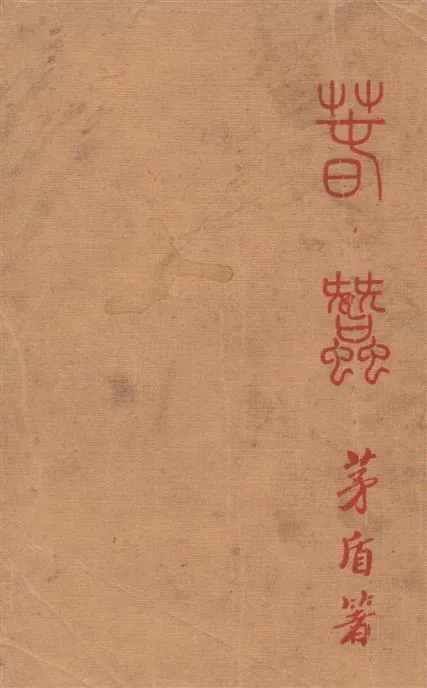 春蠶
茅盾著